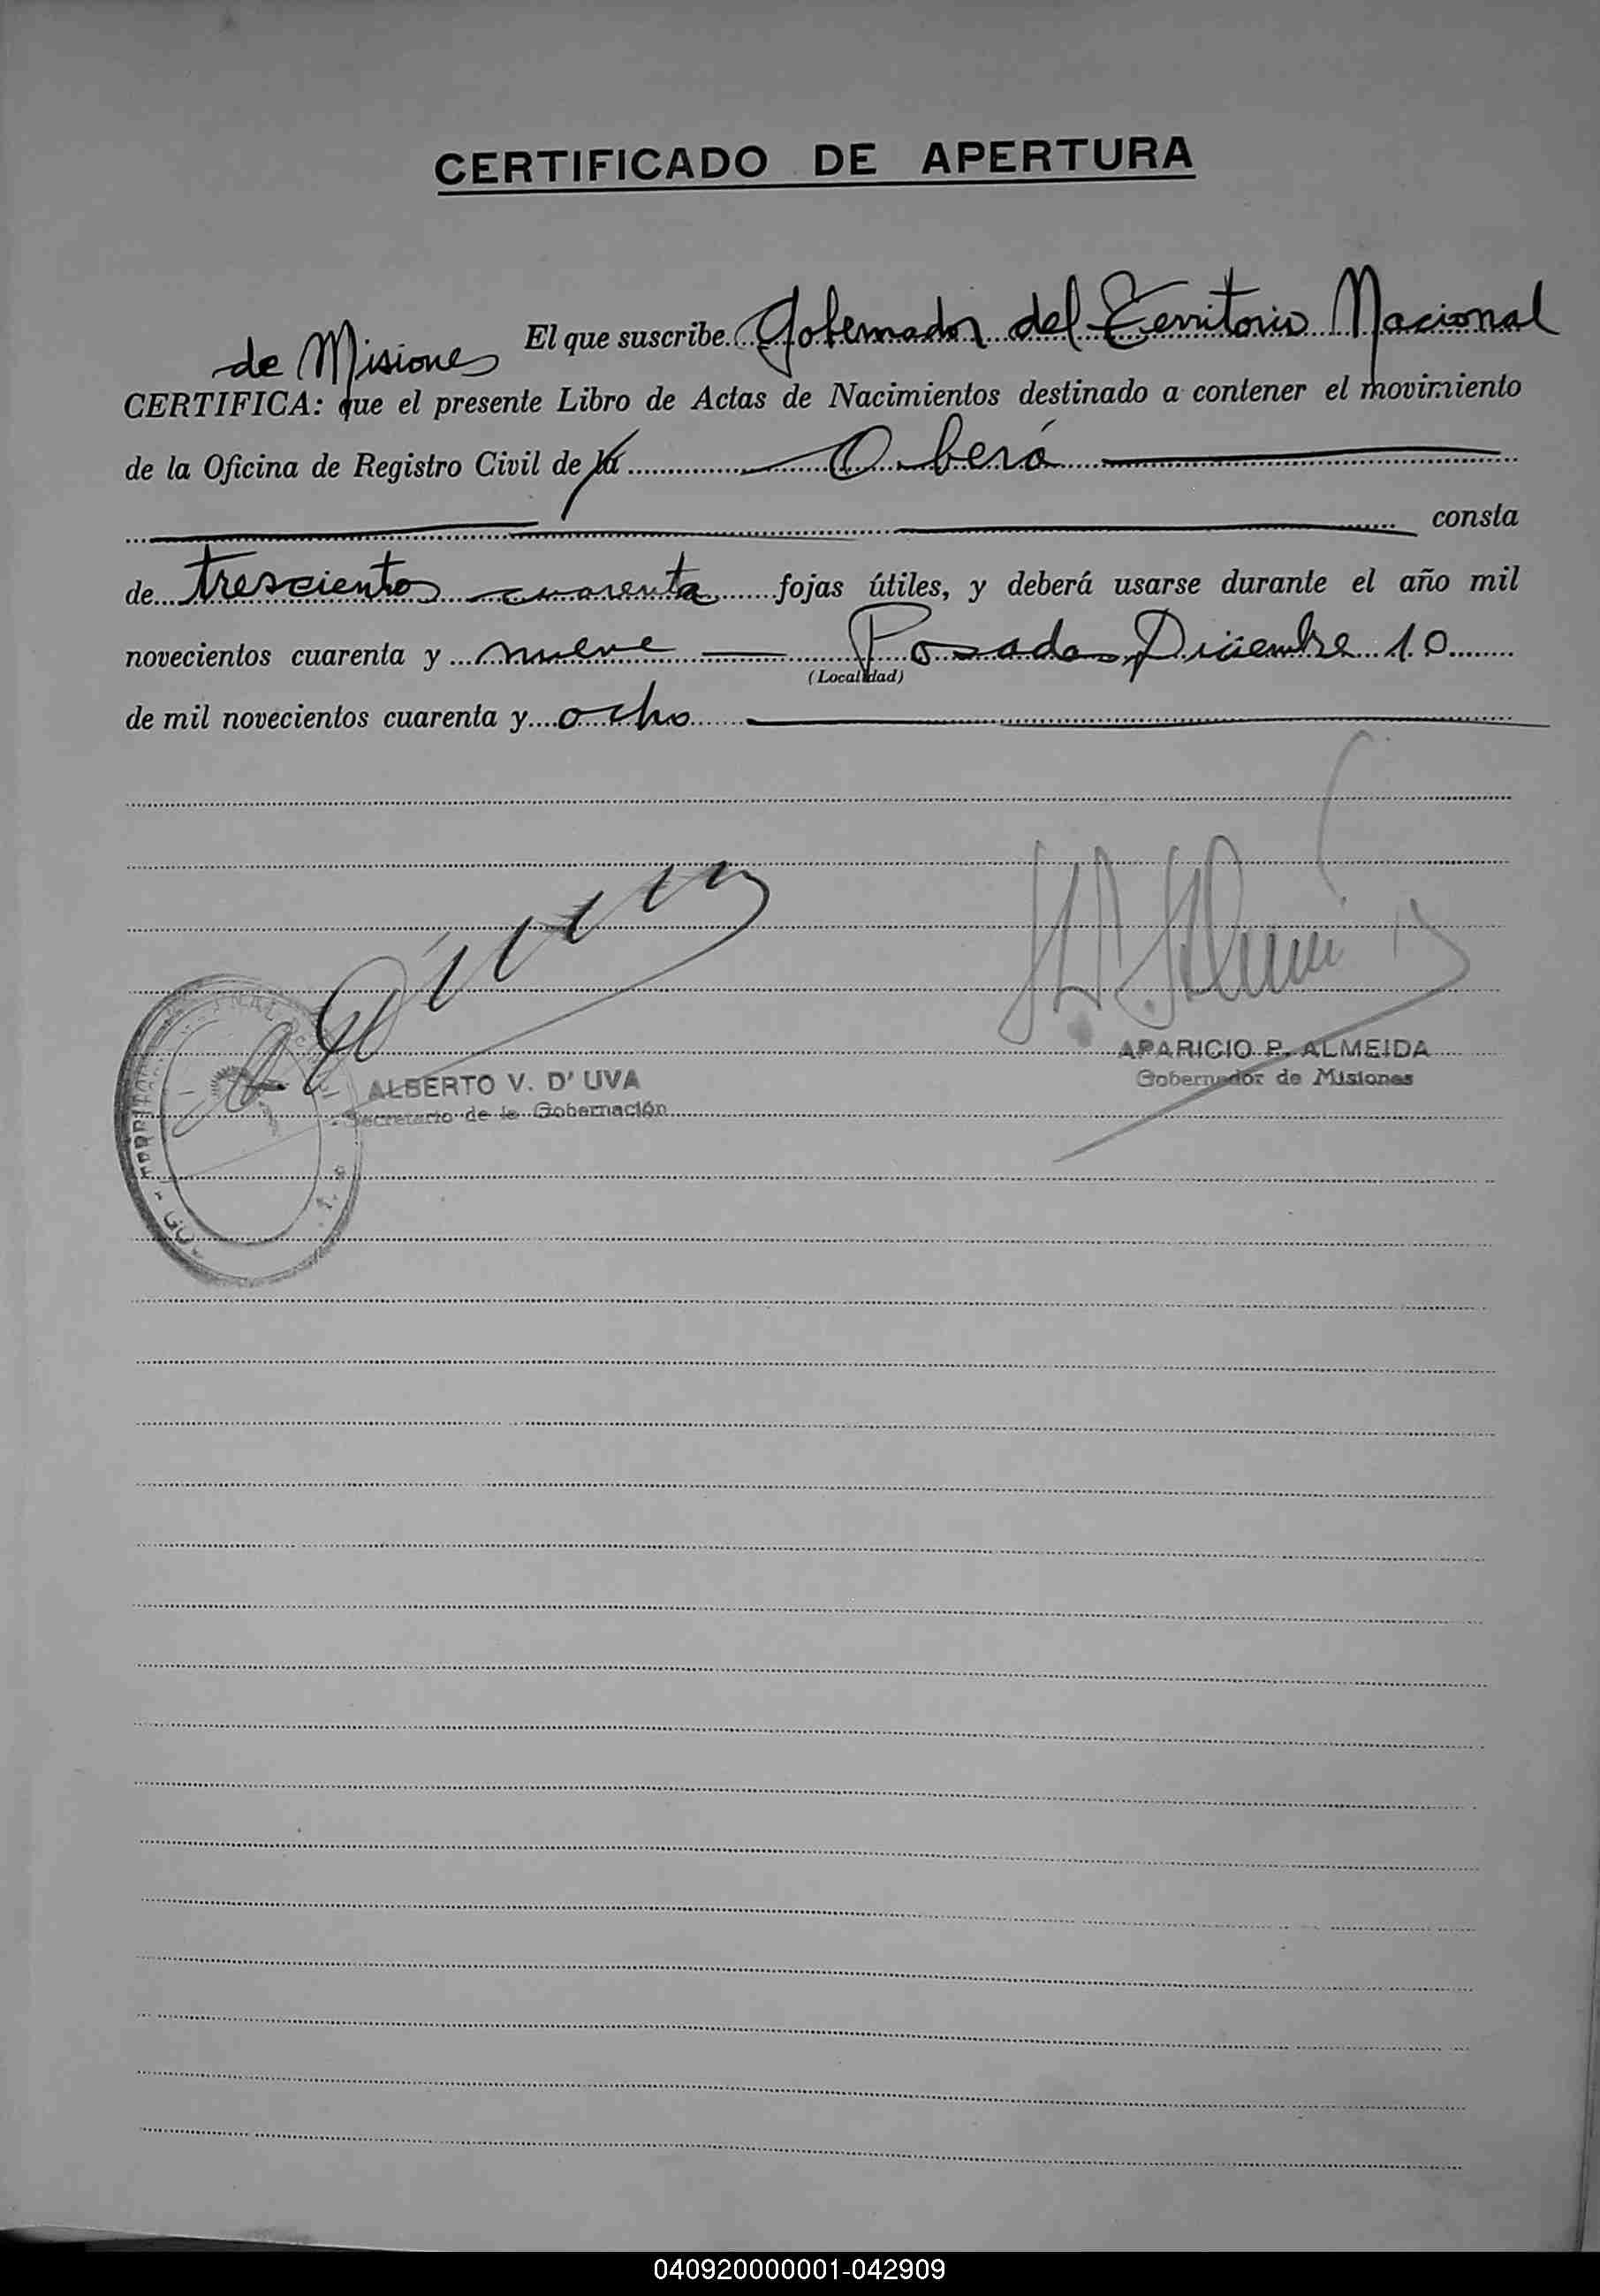 CERTIFICADO DE APERTURA
El que suscribe Gobernador del Territorio Nacional
de Misiones
CERTIFICA: que el presente Libro de Actas de Nacimientos destinado a contener el movimiento
de la Oficina de Registro Civil de la Oberá
consta
de trescientos cuarenta fojas útiles, y deberá usarse durante el año mil
novecientos cuarenta y nueve Posadas, Diciembre 10
(Localidad)
de mil novecientos cuarenta y ocho
APARICIO P. ALMEIDA
Gobernador de Misiones
ALBERTO V. D' UVA
Secretario de la Gobernación
040920000001-042909